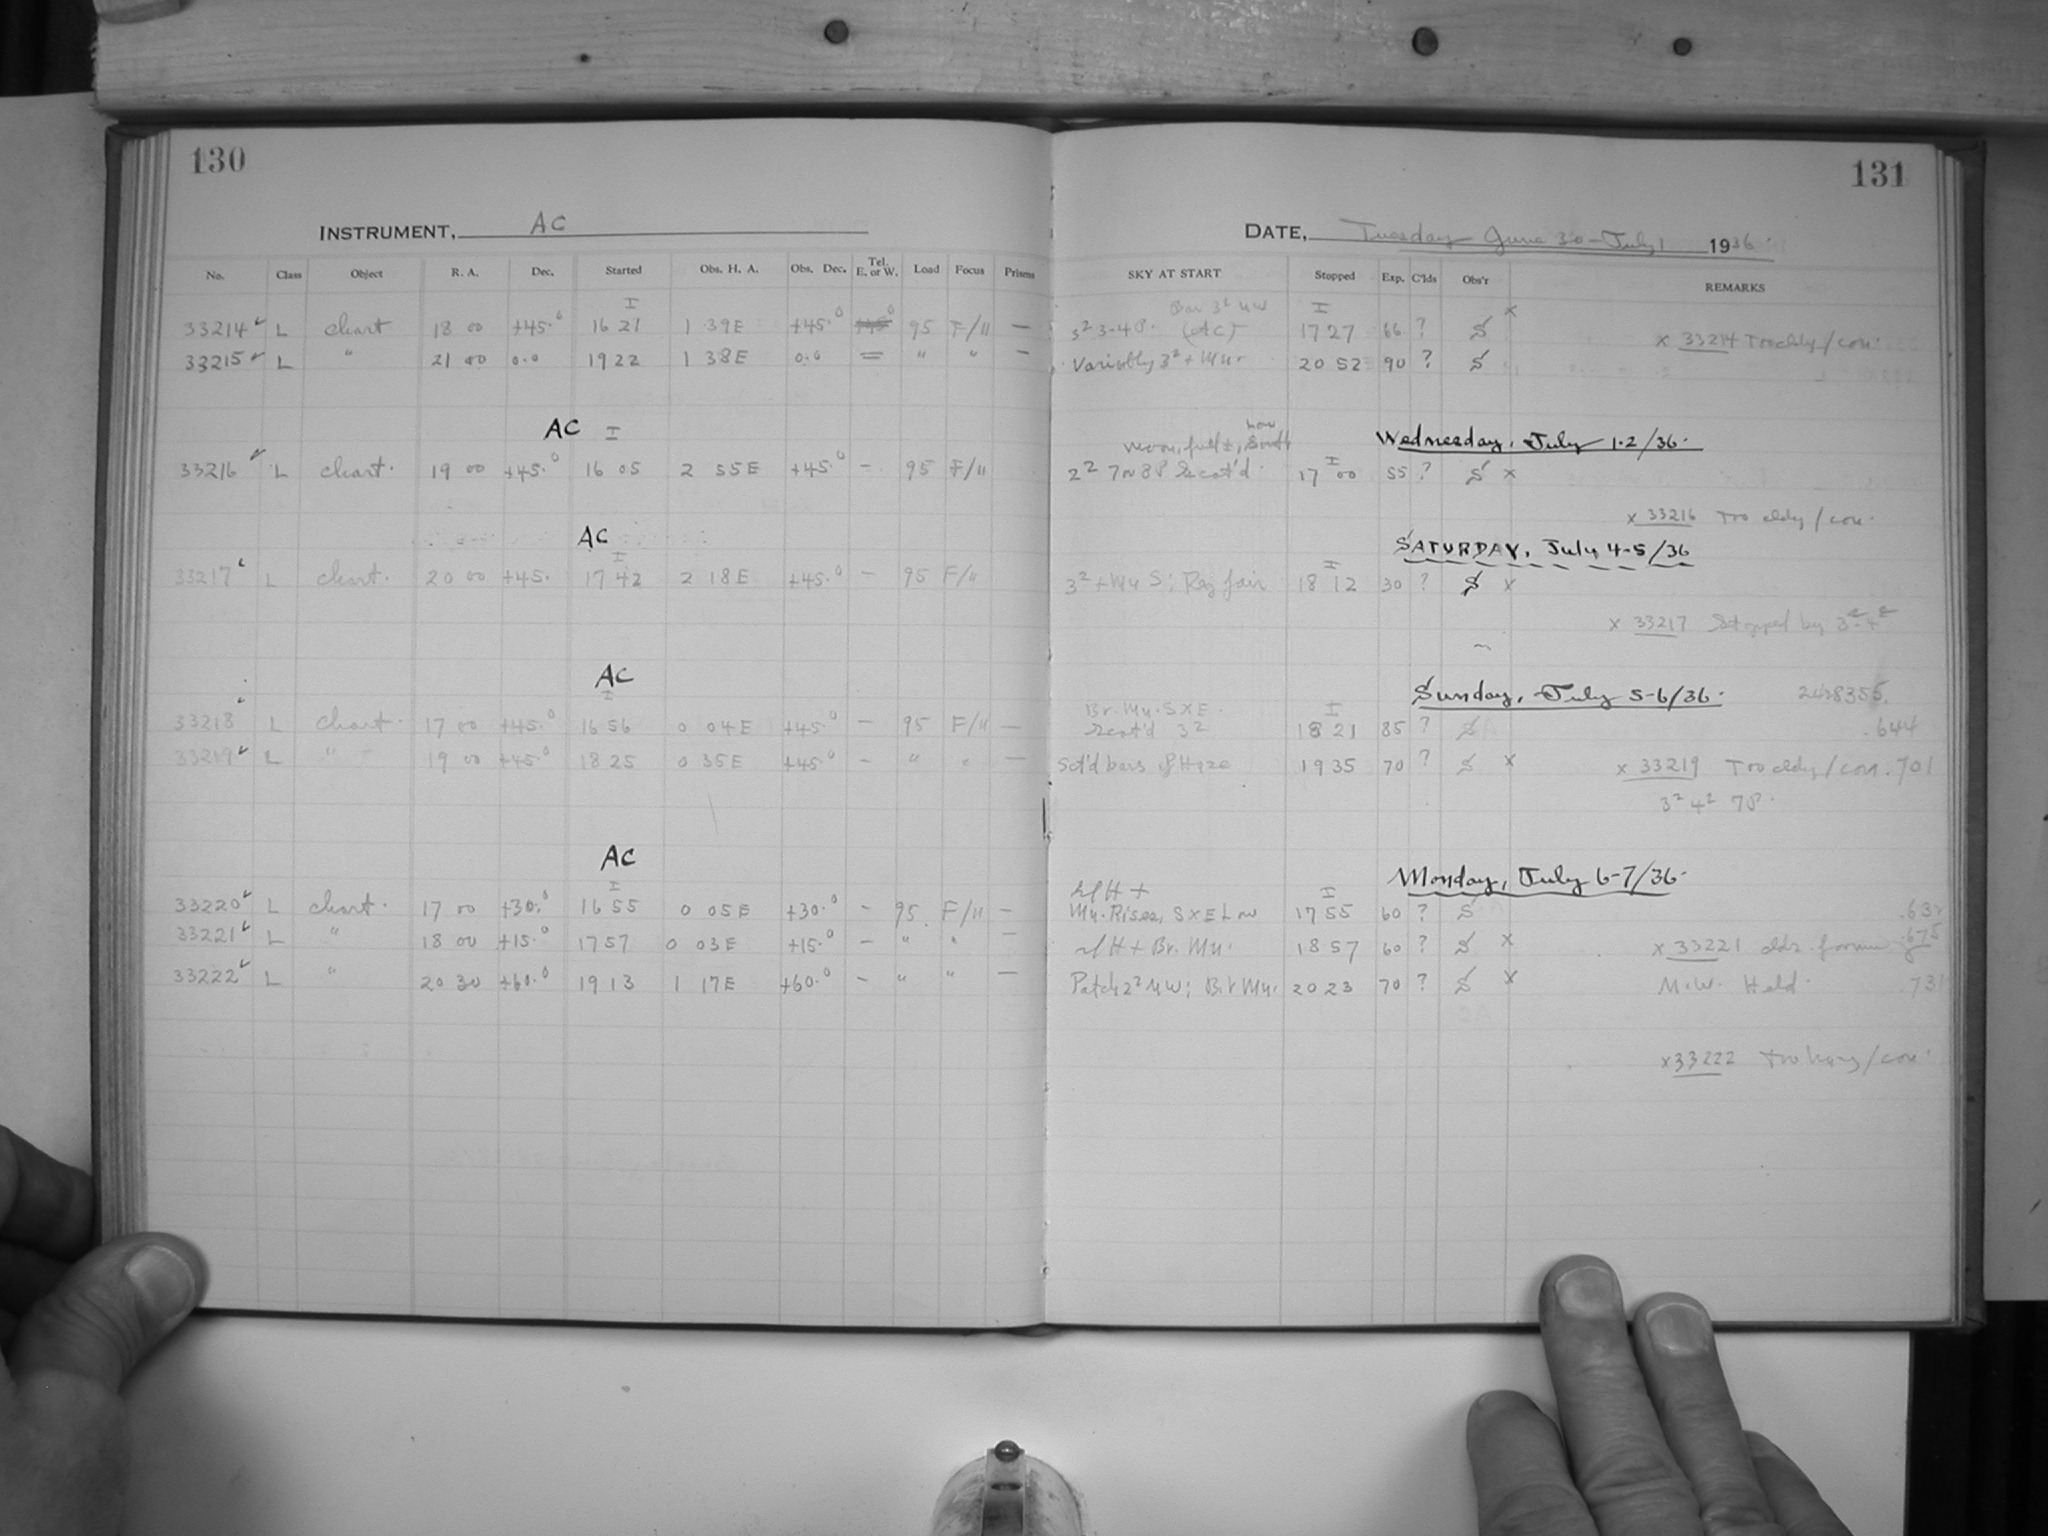 130
131
INSTRUMENT, AC
DATE, Tuesday June 30 - July 1 1936.
No. Class Object R. A. Dec. Started Obs. H. A. Obs. Dec. Tel. E. or W. Load Focus Prisms SKY AT START Stopped Exp. C'lds Obs'r REMARKS
I Bar 3² NW I
33214 L chart 18 00 +45.° 16 21 1 39E +45.° 95 F/11 — 3² 3-4 P. (AC) 17 27 66 ? S x
x 33214 Too cldy/con.
33215 L " 21 00 0.0 19 22 1 38E 0.0 = " " — Variably 3² + Mn. 20 52 90 ? S
AC Wednesday, July 1-2/36.
I Moon, full ±, low South I
33216 L chart. 19 00 +45.° 16 05 2 55E +45.° - 95 F/11 2² 7 or 8 P Scat'd. 17 00 55 ? S x
x 33216 Too cldy/con.
AC SATURDAY, July 4-5/36
I I
33217 L chart. 20 00 +45. 17 42 2 18E +45.° - 95 F/11 3² + Mn S; Reg fair 18 12 30 ? S x
x 33217 Stopped by 3²-4²
AC Sunday, July 5-6/36. 2428355.
I Br. Mn. SXE. I
33218 L chart. 17 00 +45.° 16 56 0 04E +45.° - 95 F/11 — Scat'd 3² 18 21 85 ? S .644
33219 L " 19 00 +45.° 18 25 0 35E +45.° - " " — Sct'd bars of Haze 19 35 70 ? S x x 33219 Too cldy/con. .701
3² 4² 7P.
AC Monday, July 6-7/36.
I H + I
33220 L chart. 17 00 +30.° 16 55 0 05E +30.° - 95. F/11 — Mn. Rises, SXE Low 17 55 60 ? S
33221 L " 18 00 +15.° 17 57 0 03E +15.° - " " — H + Br. Mn. 18 57 60 ? S x x 33221 clds. .675
33222 L " 20 30 +60.° 19 13 1 17E +60.° - " " — Patch 2² NW; Br Mn. 20 23 70 ? S x M.W. Held. .731
x 33222 Too hazy/con.